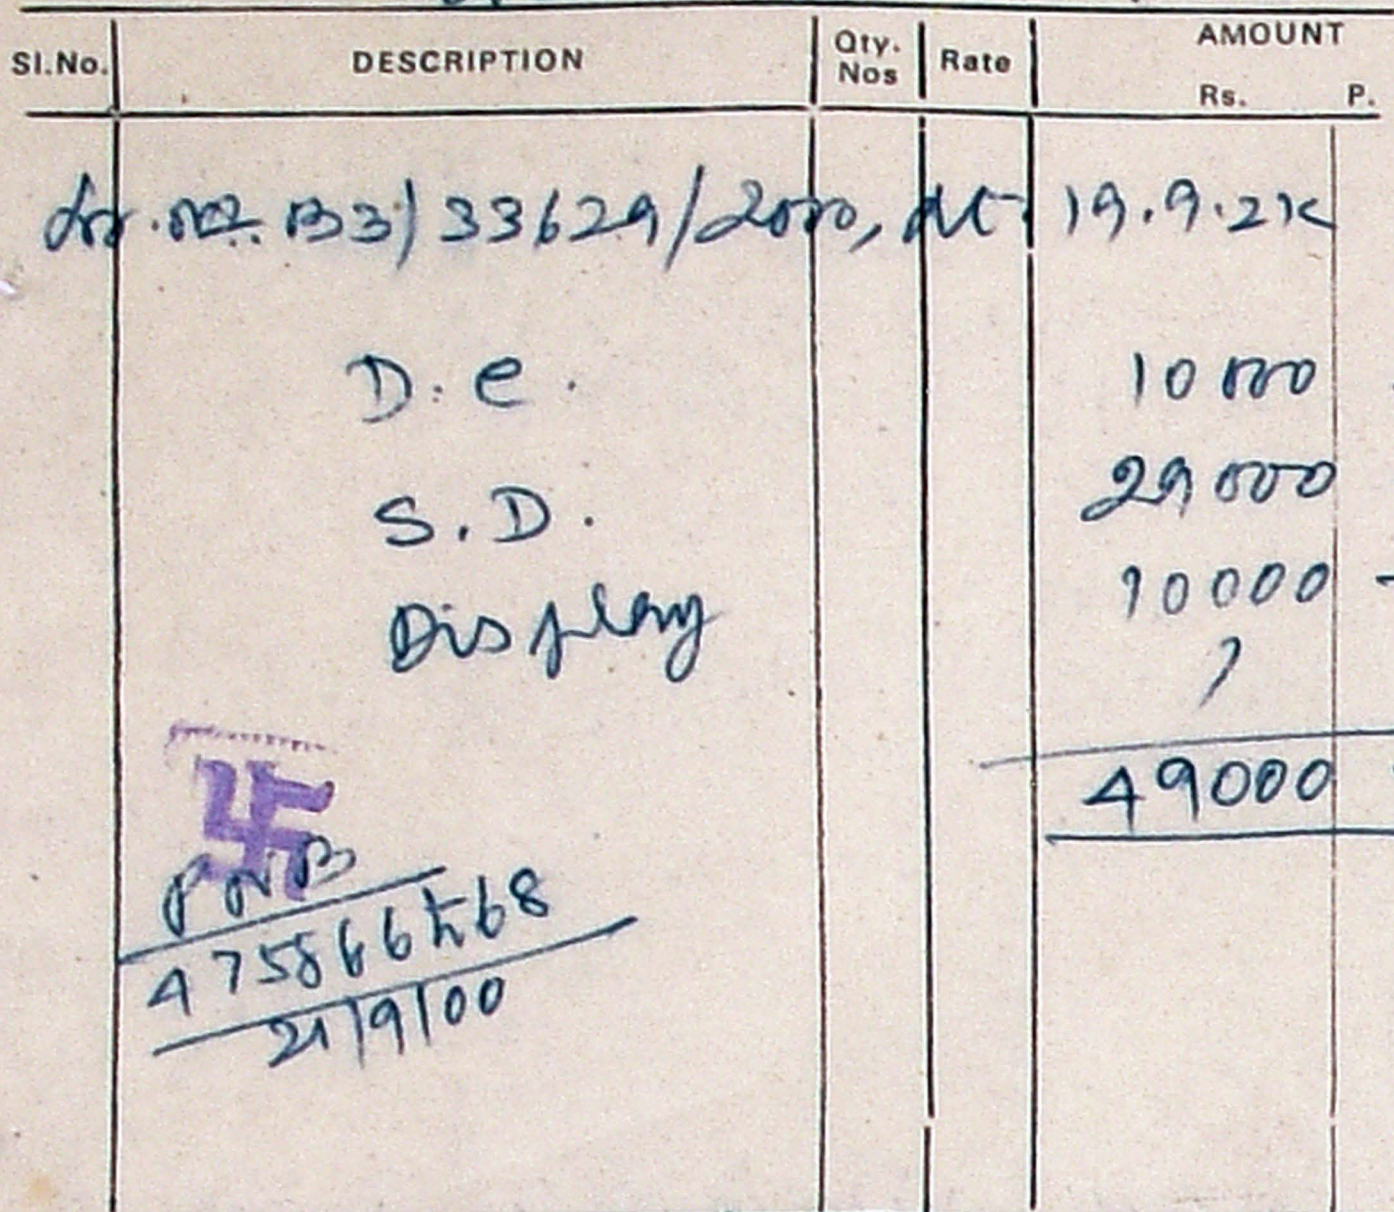 Sl.No. DESCRIPTION Qty. Nos Rate AMOUNT Rs. P.
Lr. No. B3/33629/2000, dt 19.9.2K
D. C. 10000
S. D. 29000
Display 10000 -
49000
PNB
475866568
21/9/00